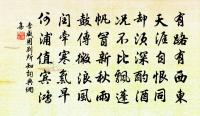 有路有西東
天涯自恨同
却須深酌酒
況不比飄蓬
帆冒新秋雨
鼓傳微浪風
閏牽寒氣早
何浦值賓鴻
李咸用別所知詞典網
集